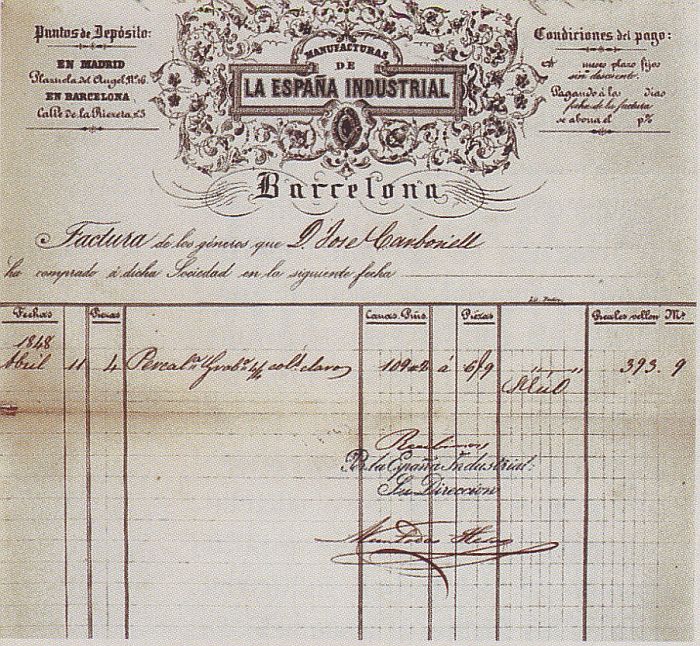 Puntos de Depósito:
EN MADRID
Plazuela del Angel N.º 16.
EN BARCELONA
Calle de la Riereta n.º 3
MANUFACTURAS
DE
LA ESPAÑA INDUSTRIAL
Barcelona
Condiciones del pago:
meses plazo fijos
sin descuento.
Pagando á los días
fecha de la factura
se abona el p%
Factura de los géneros que D. Jose Carbonell
ha comprado á dicha Sociedad en la siguiente fecha
Fechas Piezas Canas Piezas Reales vellon Mˢ
1848
Abril 11 4 colˢ claros á 393. 9
Recibimos
Por la España Industrial:
Su Direccion